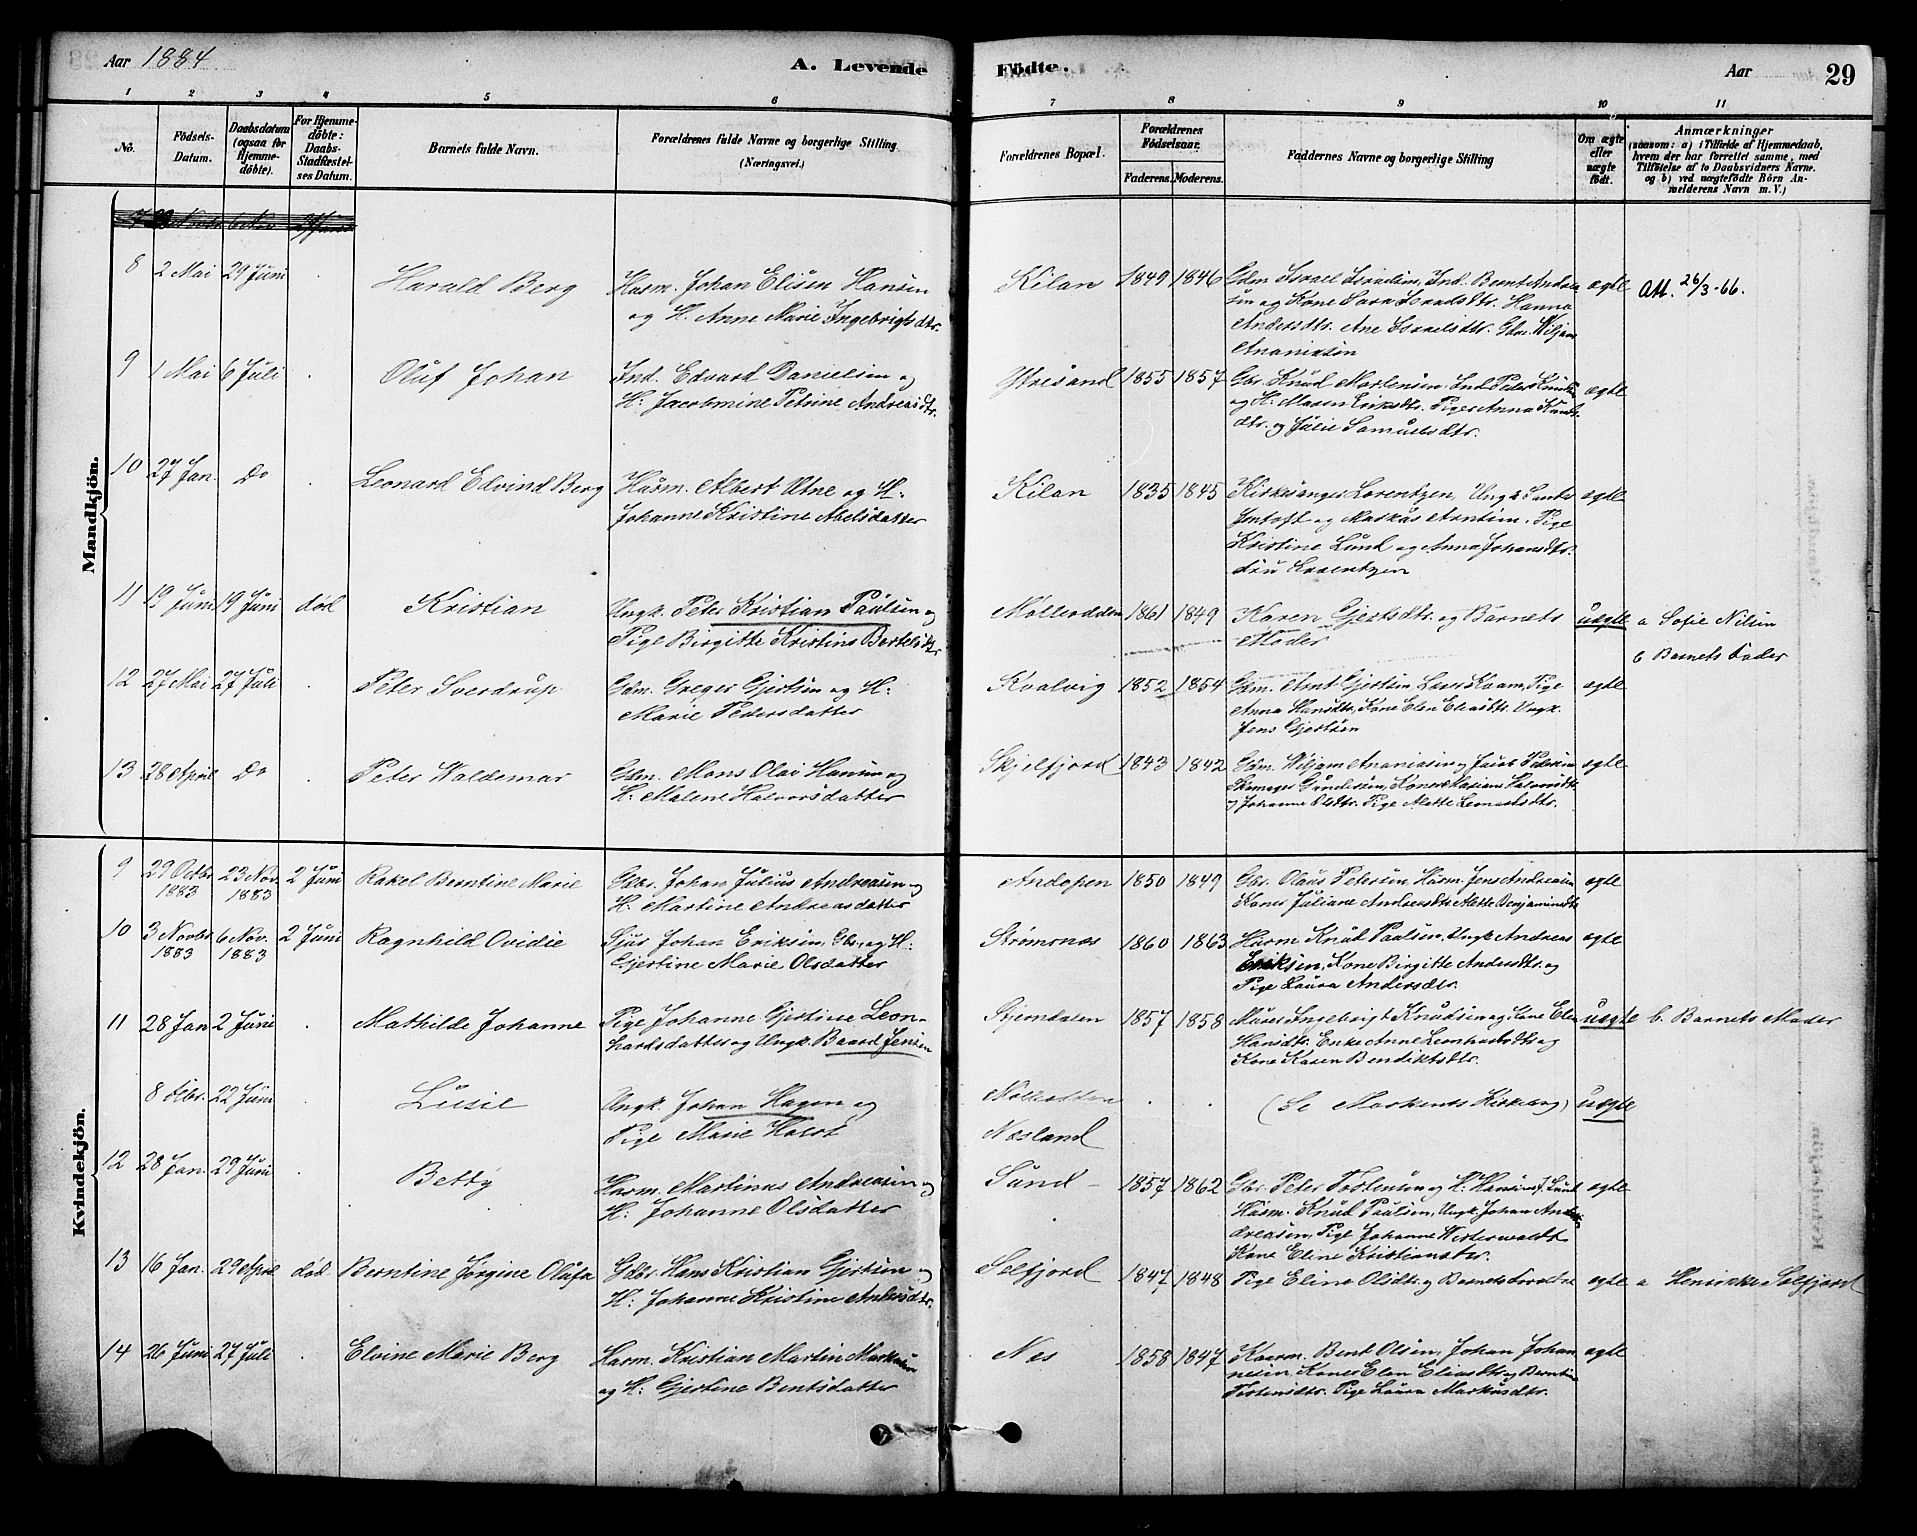 Aar 1884
A. Levende
Födte.
Aar
29
1 2 3 4 5 6 7 8 9 10 11
No.
Födsels-
Datum.
Daabsdatum
(ogsaa for
Hjemme-
døbte).
For Hjemme-
døbte:
Daabs-
Stadfæstel-
ses Datum.
Barnets fulde Navn.
Forældrenes fulde Navne og borgerlige Stilling.
(Næringsvei.)
Forældrenes Bopæl.
Forældrenes
Fødselsaar.
Faderens. Moderens.
Faddernes Navne og borgerlige Stilling
Om ægte
eller
uægte
født.
Anmærkninger
(saasom: a) i Tilfælde af Hjemmedaab,
hvem der har forrettet samme, med
Tilføielse af to Daabsvidners Navne.
og b) ved uægtefødte Börn An-
melderens Navn m. V.)
Mandkjön.
8 2 Mai 29 Juni . Harald Berg
Husm. Johan Elisen Hansen
og H. Anne Marie Ingebrigtsdtr.
Kilan 1849 1846
Gdm Israel Israelsen, Ind. Bernt Andrea
sen og Kone Sara Israelsdtr. Hanna
Andersdtr. Ane Israelsdtr. Gbr. Wiljam
Ananiasen
ægte
Att. 26/3-66.
9 1 Mai 6 Juli . Oluf Johan
Ind. Edvard Danielsen og
H: Jacobmine Petrine Andreasdtr.
Ytresand 1855 1857
Gbr. Knud Mortensen, Ind. Peder Knudsen
og H. Maren Eriksdtr. Piger Anna Knuds
dtr. og Julie Samuelsdtr.
ægte
10 27 Jan. Do . Leonard Edvind Berg
Husm. Albert Utne og H:
Johanne Kristine Abelsdatter
Kilan 1835 1845
Kirkesanger Lorentzen, Ungk
og Markus Arntsen, Pige
Kristine Lund og Anna Johansdtr.
fru Lorentzen
ægte
11 19 Juni 19 Juni død Kristian
Ungk. Peter Kristian Paulsen og
Pige Birgitte Kristine Bertelsdtr
Mølleodden 1861 1849
Karen Gjertsdtr. og Barnets
Moder
uægte
a Sofie Nilsen
b Barnets Fader
12 27 Mai 27 Juli . Peter Sverdrup
Gdm. Greger Gjertsen og H:
Marie Pedersdatter
Kvalvig 1852 1854
Gdm. Arnt Gjertsen, Lars Kvam, Pige
Anna Hansdtr, Kone Elen Eliasdtr. Ungk.
Jens Gjertsen
ægte
13 28 April Do . Peter Waldemar
Gdm. Mons Olai Hansen og
H. Malene Halvorsdatter
Skjelfjord 1843 1842
Gdm. Wiljam Ananiasen og Jacob Pedersen
Skomager Gundersen, Koner Mariane Halvorsdtr.
og Johanne Olsdtr. Pige Alette Leonardsdtr.
ægte
Kvindekjön.
9 29 Octbr 1883 23 Nov. 1883 2 Juni Rakel Berntine Marie
Gbr. Johan Julius Andreasen og
H. Martine Andreasdatter
Andopen 1850 1849
Gbr. Olaus Petersen Husm. Jens Andreasen
Koner Juliane Andersdtr. Alette Benjaminsdtr
ægte
10 3 Novbr 1883 6 Nov. 1883 2 Juni Ragnhild Ovidie
Sjus Johan Eriksen, Gbr. og H:
Gjertine Marie Olsdatter
Strømsnæs 1860 1863
Husm Knud Paulsen, Ungk Andreas
Eriksen, Kone Birgitte Andersdtr. og
Pige Laura Andersdtr.
ægte
11 28 Jan 2 Juni . Mathilde Johanne
Pige Johanne Gjertine Leon-
hardsdatter og Ungk. Baard Jensen
Stjerndalen 1857 1858
Murer Ingebrigt Knudsen og Kone Elen
Hansdtr. Enke Anne Leonhardsdtr og
Kone Karen Bendiktsdtr.
uægte
b. Barnets Moder
8 Febr. 22 Juni Lusie
Ungk. Johan Hagen og
Pige Marie Holst
Næsland
. .
(Se Moskenes Kirkebog)
uægte
12 28 Jan. 29 Juni . Betty
Husm. Martinus Andreasen og
H. Johanne Olsdatter
Sund 1857 1862
Gbr. Peter Tostensen og H: Hansine J. Lund
Husm. Knud Paulsen, Ungk. Johan An
dreasen, Pige Johanne Westerwaldt
Kone Eline Kristiansdtr.
ægte
13 16 Jan. 29 April død Berntine Jørgine Olufa
Gbr. Hans Kristian Gjertsen og
H. Johanne Kristine Andersdtr.
Selfjord 1847 1848
Pige Eline Olsdtr. og Barnets Forældre
ægte
a Henrikke Selfjord
14 26 Juni 27 Juli . Elvine Marie Berg
Husm. Kristian Martin Markusen
og H: Gjertine Bentsdatter
Næs 1858 1847
Kaarm. Bent Olsen, Johan Johan
nesen, Koner Elen Eliasdtr og Berntine
Tostensdtr. Pige Laura Markusdtr.
ægte